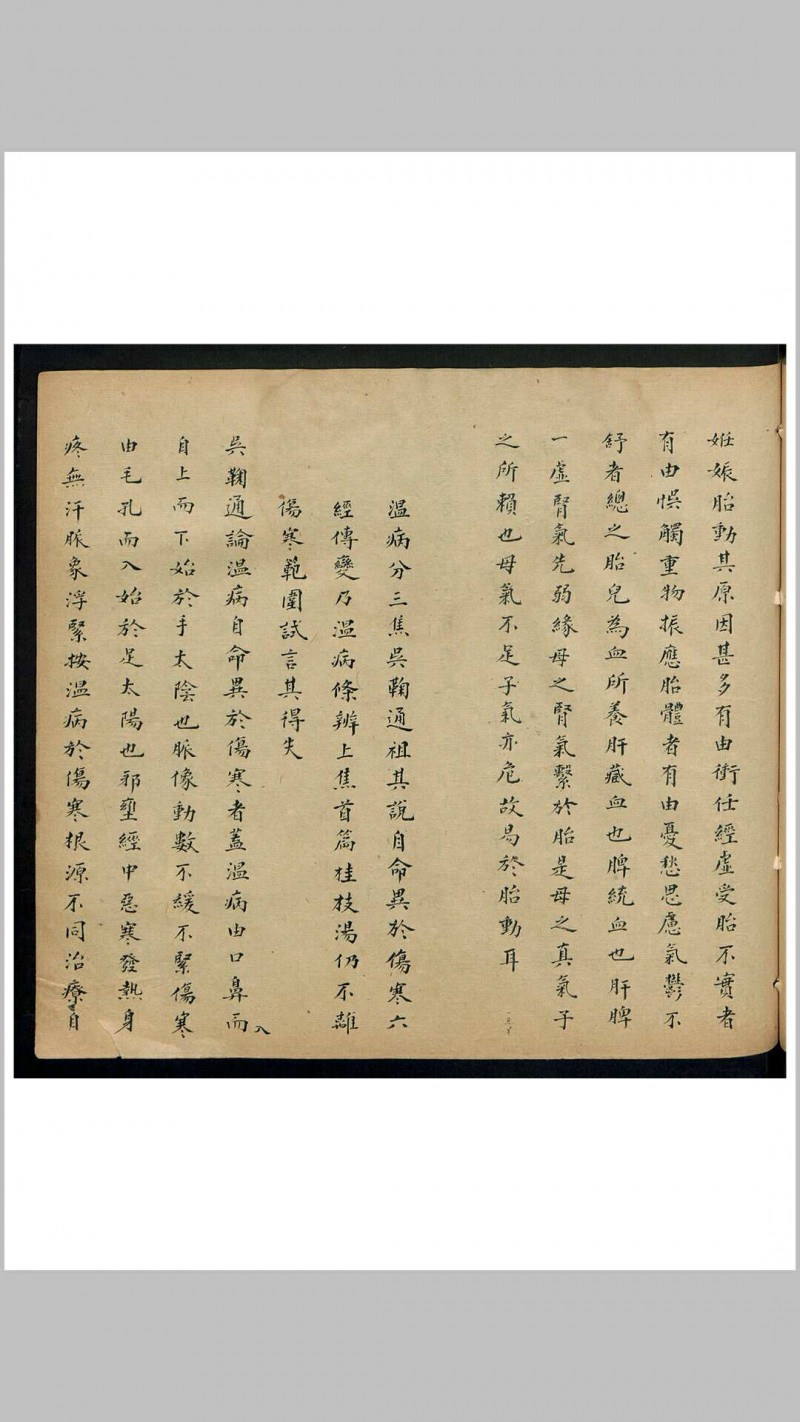 妊娠胎動其原因甚多有由衝任經虛受胎不實者
有由悞觸重物振應胎體者有由憂愁思慮氣鬱不
舒者總之胎兒為血所養肝藏血也脾統血也肝脾
一虛腎氣先弱緣母之腎氣繫於胎是母之真氣子
之所賴也母氣不足子氣亦危故易於胎動耳
溫病分三焦吳鞠通祖其說自命異於傷寒六
經傳變乃溫病條辨上焦首篇桂枝湯仍不離
傷寒範圍試言其得失
吳鞠通論溫病自命異於傷寒者蓋溫病由口鼻而入
自上而下始於手太陰也脈像動數不緩不緊傷寒
由毛孔而入始於足太陽也邪壅經中惡寒發熱身
疼無汗脈象浮緊按溫病於傷寒根源不同治療自